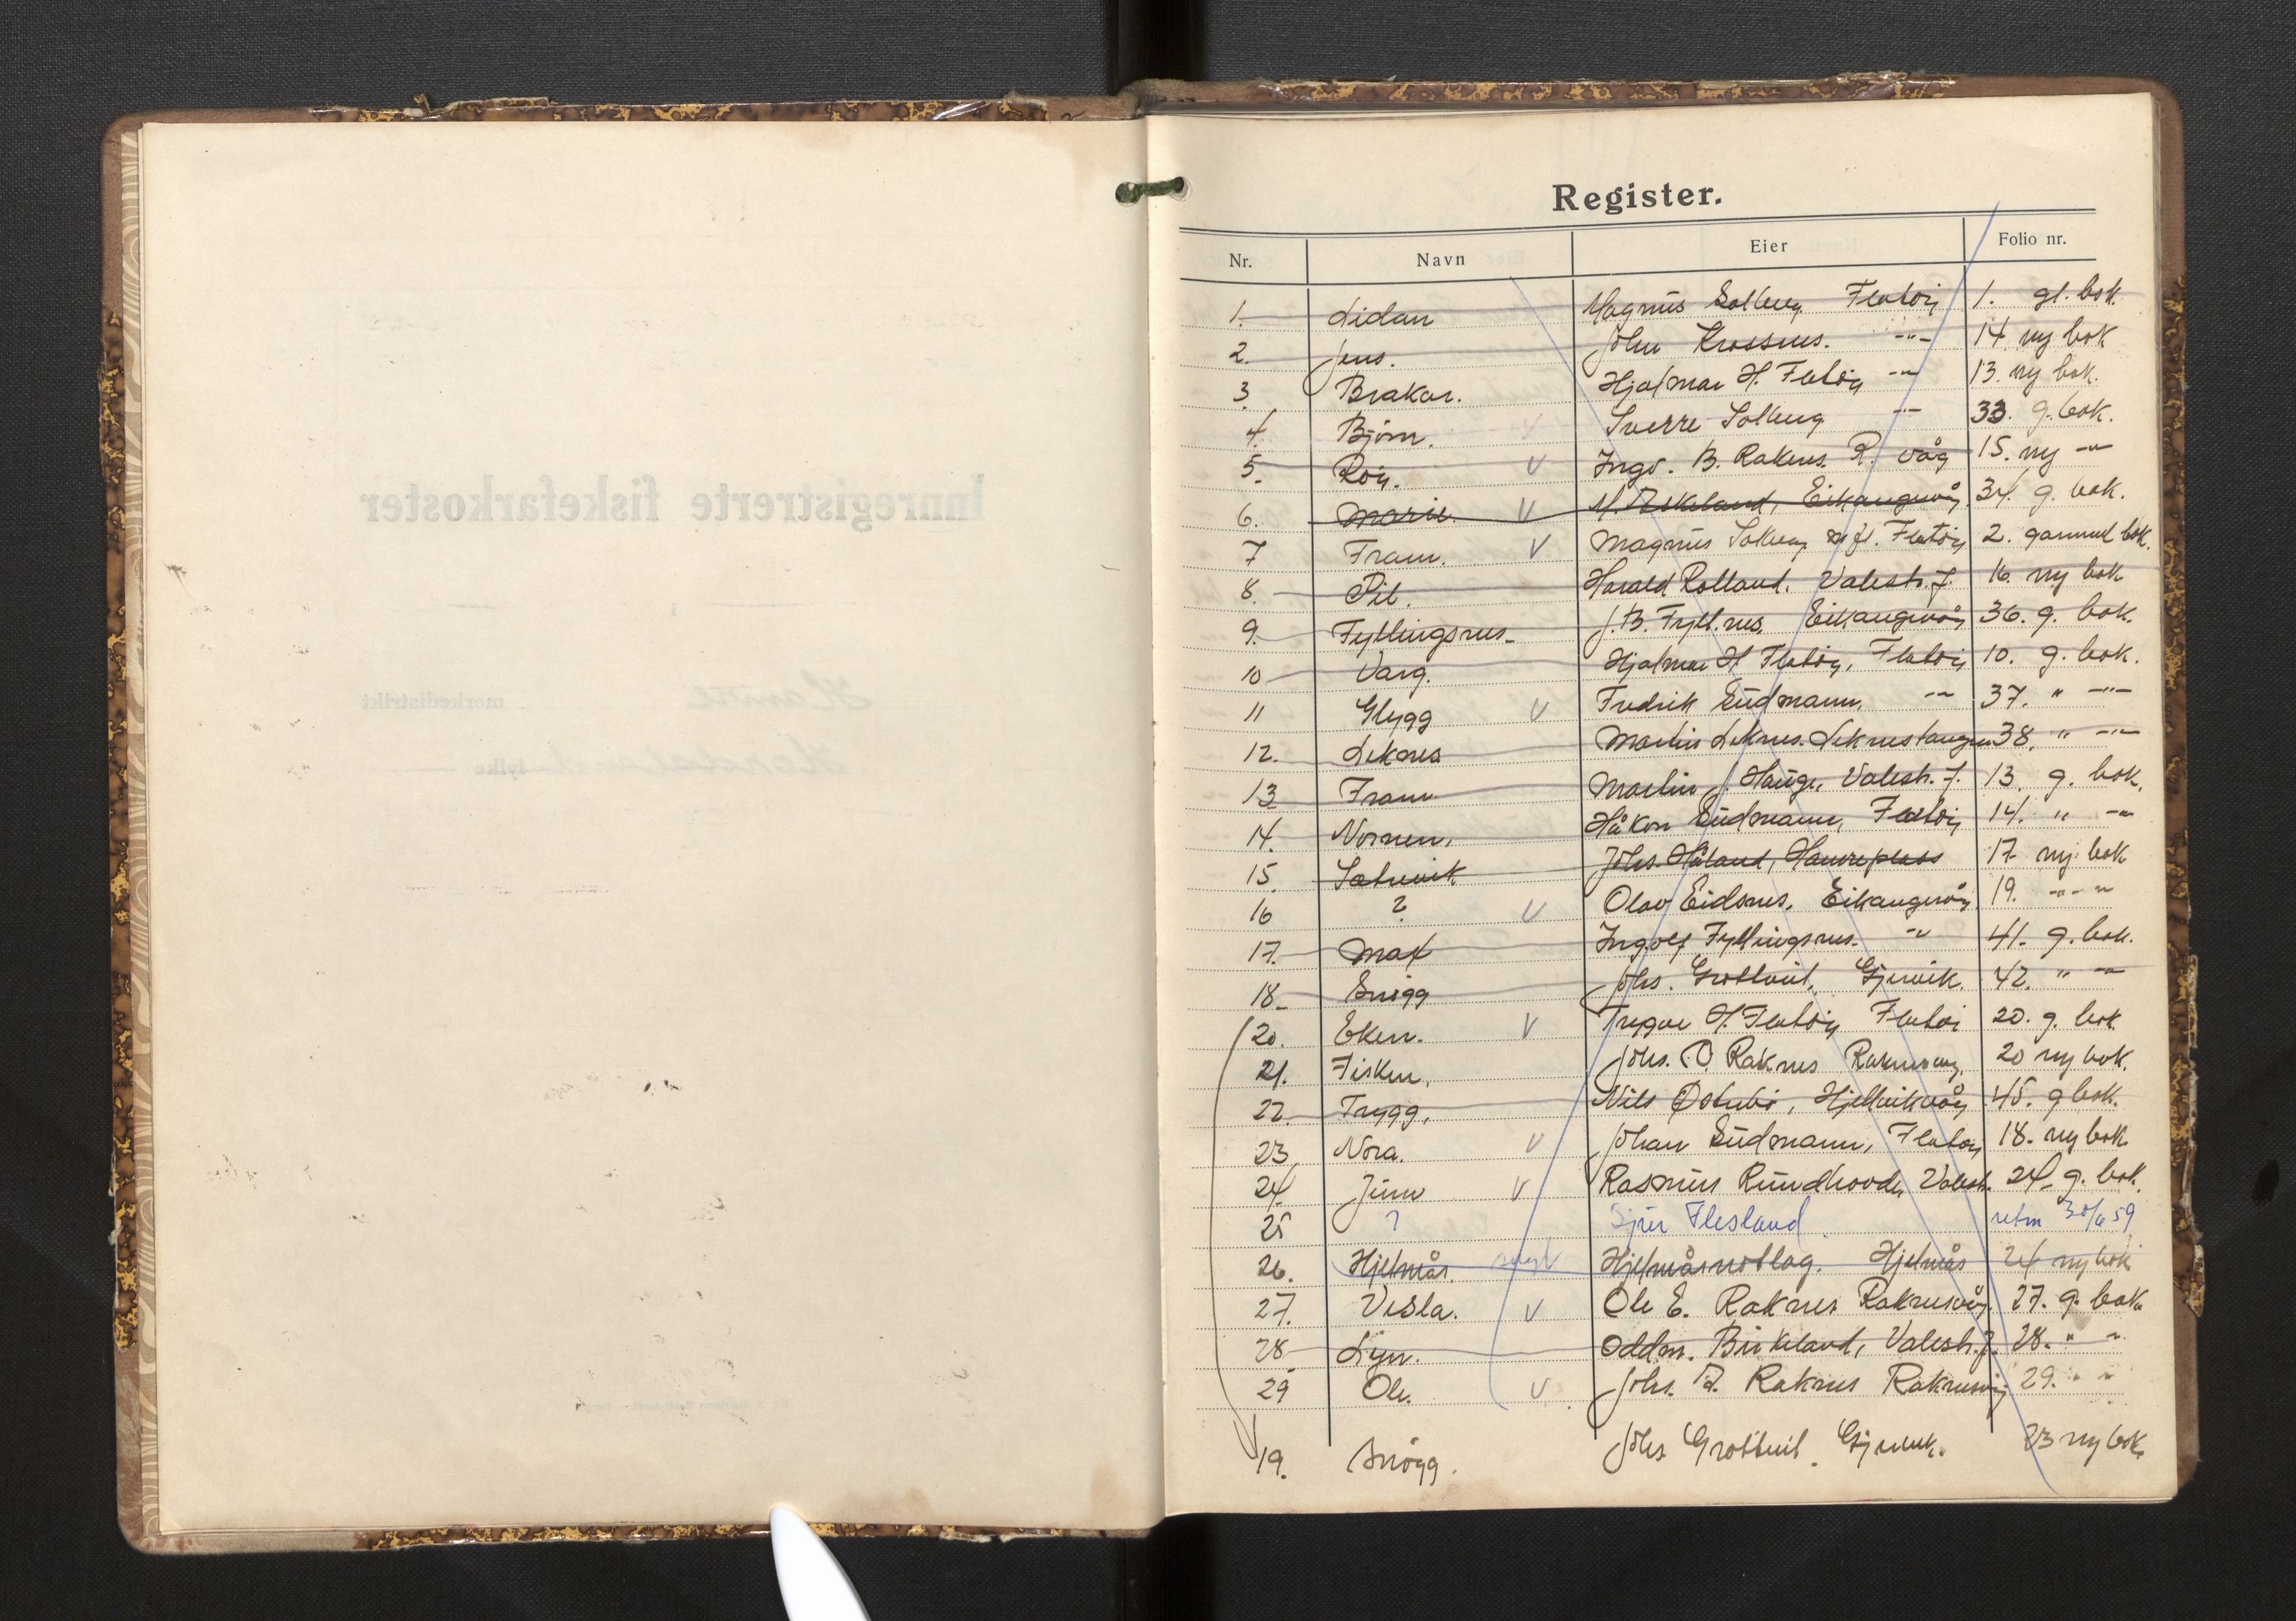 Innregistrerte fiskefarkoster
Hamre merkedistrikt
Hordaland fylke
Register.
Nr. Navn Eier Folio nr.
1. Lidan Magnus Solberg Flatöy 1. gl. bok.
2. Jens. John Krossnes. -"- 14 ny bok
3 Brakar. Hjalmar H. Flatöy -"- 13. ny bok.
4. Björn. Sverre Solberg -"- 33. g. bok.
5. Röy. V Ingv. B. Raknes. R. våg 15. ny -"-
6. Marie. V M. Eskeland, Eikangervåg 34. g. bok.
7 Fram. V Magnus Solberg Flatöy 2. gammel bok.
8. Pil. Harald Rolland. Valestr.f. 16. ny bok
9. Fyllingsnes. J. B. Fyll.nes. Eikangervåg 36. g. bok.
10 Varg. Hjalmar H Flatöy, Flatöy 10. g. bok.
11 Glygg V Fredrik Südmann, -"- 37. " -"-
12. Leknes Martin Leknes. Leknestangen 38. " -"-
13 Fram Martin J. Hauge, Valestr.f. 13. g. bok.
14. Nornen, Håkon Südmann, Flatöy 14. " -"-
15. Solvik Johs. Håland, Hamreplass 17. ny bok
16 ? V Olav Eidsnes, Eikangervåg 19. -"- "
17. Max Ingolf Fyllingsnes. -"- 41. g. bok.
18 Snögg Johs. Grotteit, Gjervik. 42. " -"-
20. Eken. V Trygve H. Flatöy Flatöy 20. g. bok.
21. Fisken, Johs. O Raknes Raknesvåg. 20 ny bok.
22. Trygg, Nils Östebö, Hjellvikvåg 45. g bok.
23 Nora. V Johan Südmann, Flatöy 18. ny bok.
24 Juno V Rasmus Rundhovde, Valestr. 24. g. bok.
25 ? Sjur Flesland retn 30/6 59
26. Hjelmås. Hjelmåsnotlag. Hjelmås 24 ny bok
27. Vesla. V Ole E. Raknes Raknesvåg 27. g. bok.
28 Lyn. Oddm. Birkeland, Valestr.f. 28. " "
29 Ole. V Johs. Raknes Raknesvåg 29. " "
19. Snögg. Johs Grotteit. Gjervik. 23 ny bok.